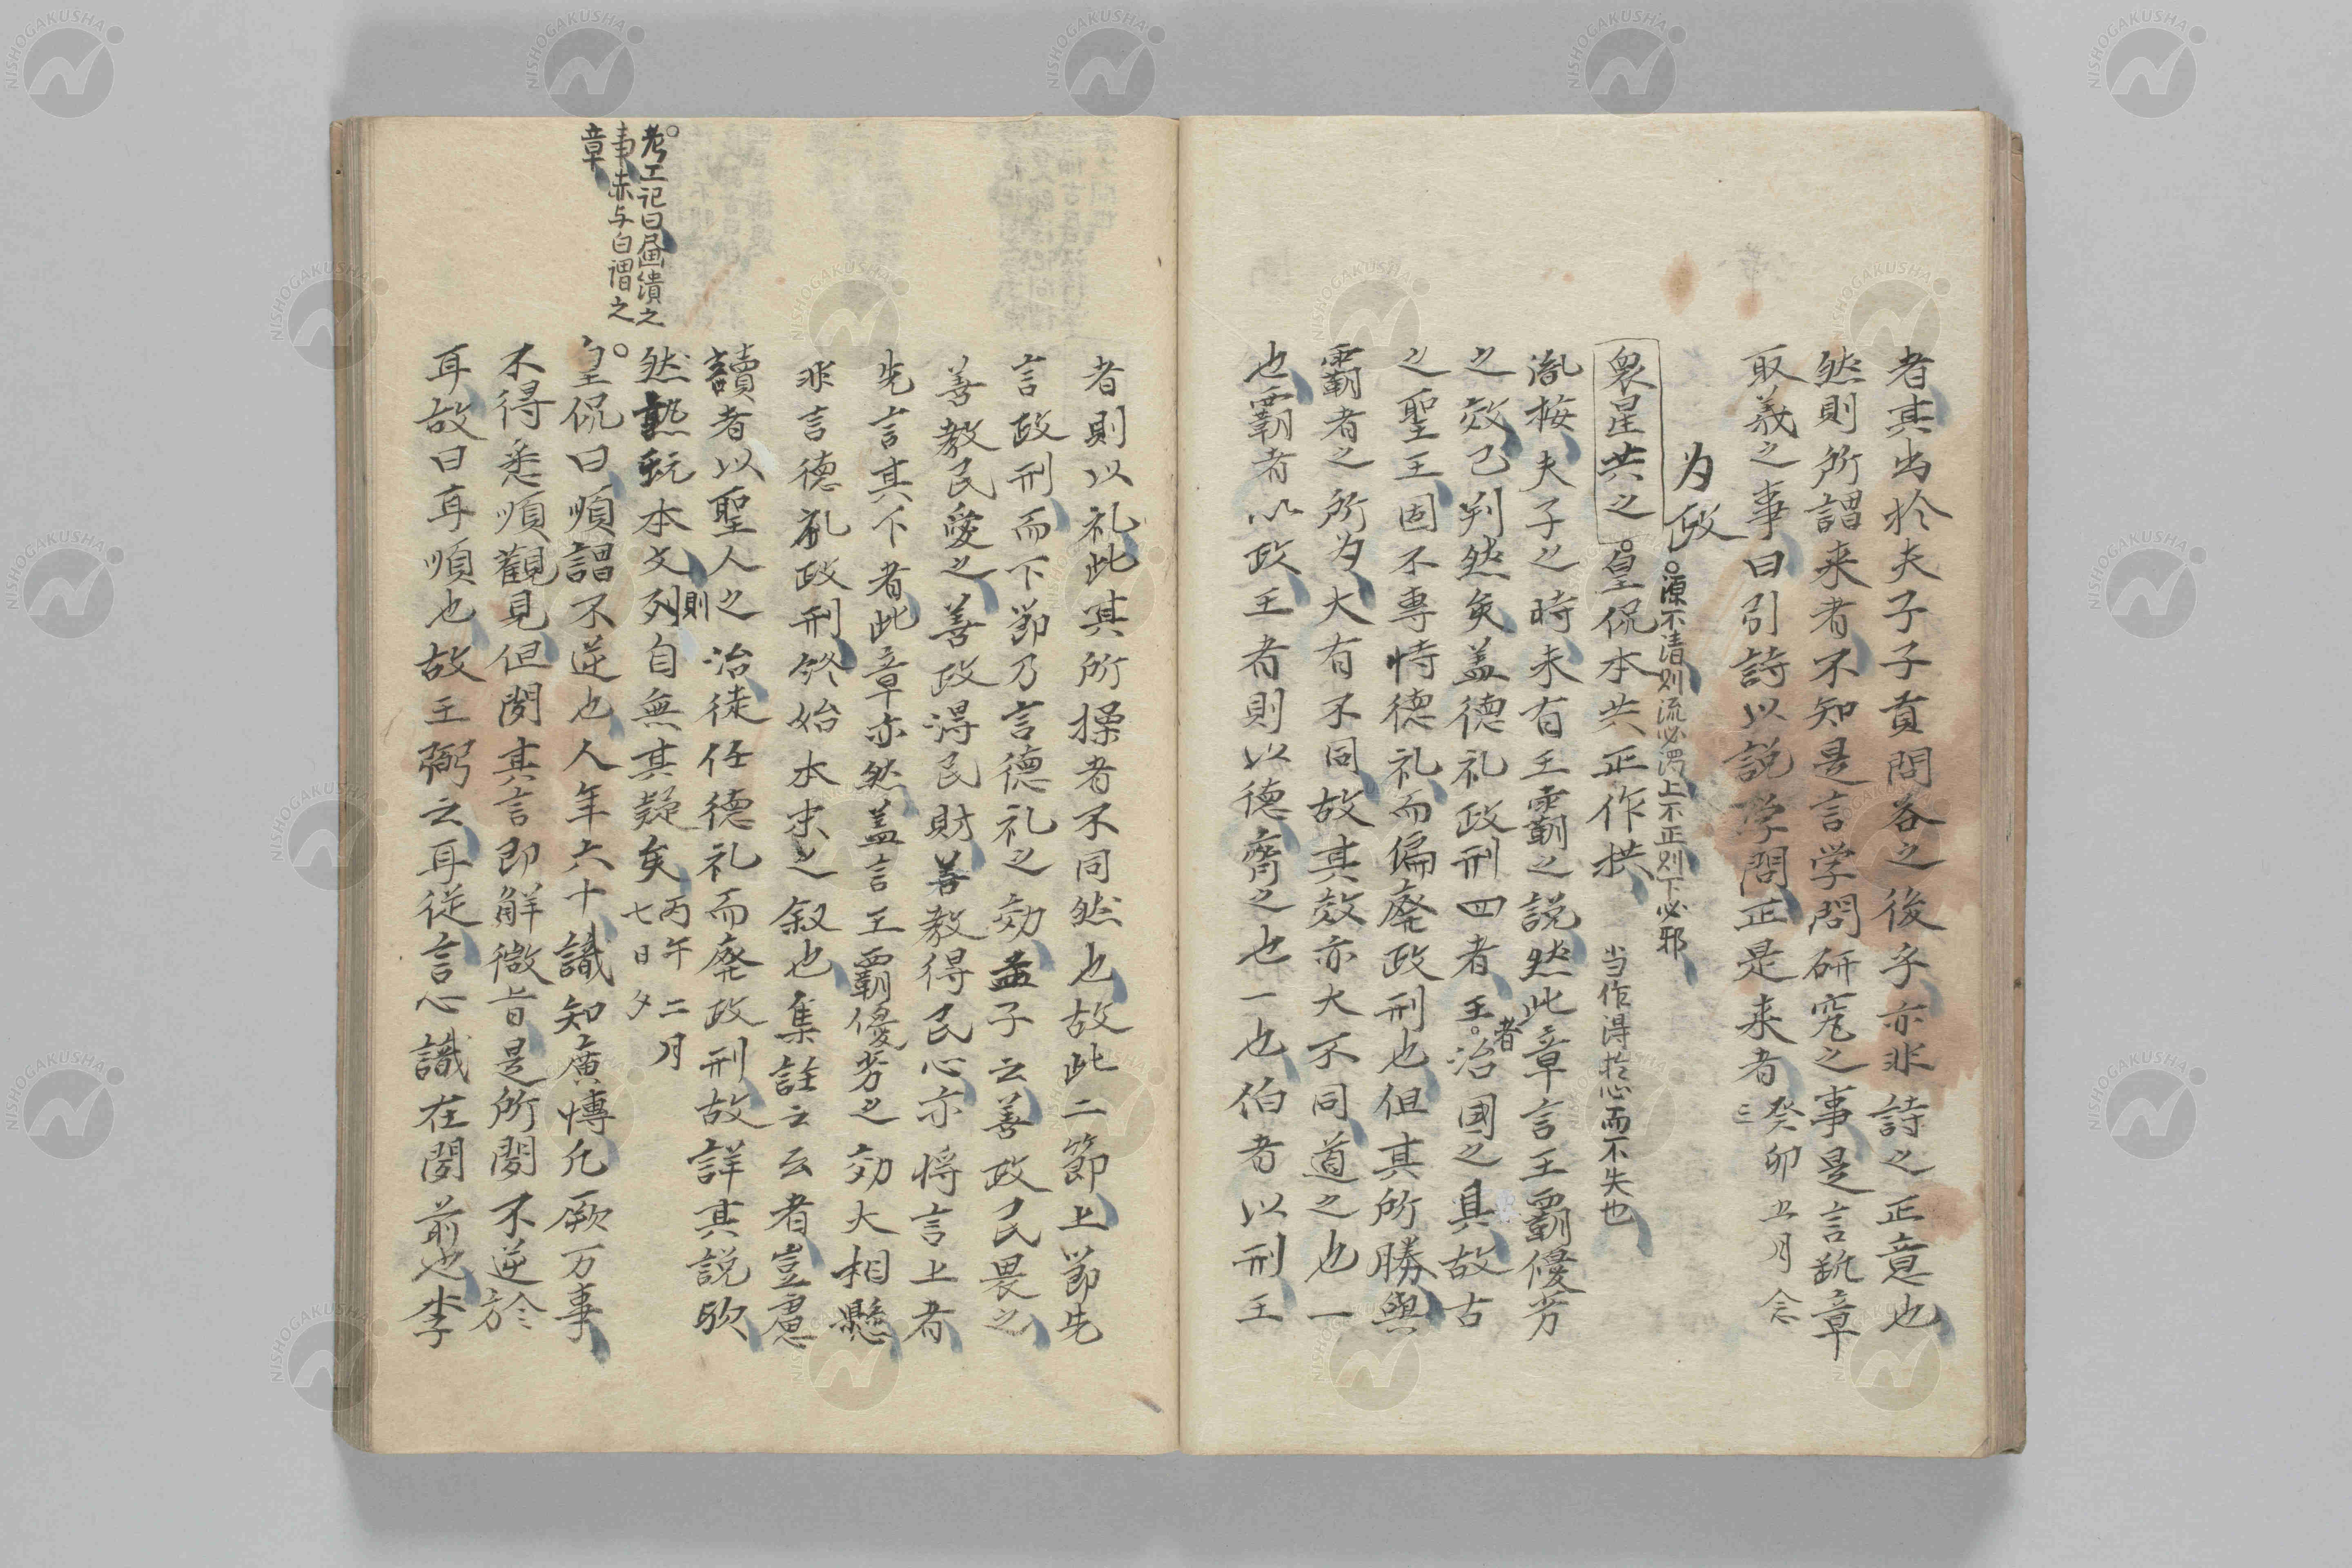 者其出於夫子子貢問答之後乎亦非詩之正意也
然則所謂来者不知是言学問研究之事是言説章
取義之事曰引詩以説学問正是来者
癸卯五月念
三
为政
源不清则流必濁上不正则下必邪
衆星共之 皇侃本共正作拱
当作得於心而不失也
胤按夫子之時未有王霸之説然此章言王霸優劣
之效已判然矣盖徳礼政刑四者王者治國之具故古
之聖王固不專恃德礼而偏廃政刑也但其所勝與
霸者之所为大有不同故其效亦大不同道之也一
也霸者以政王者則以德齊之也一也伯者以刑王
者則以礼此其所操者不同然也故此二節上節先
言政刑而下節乃言德礼之効孟子云善政民畏之
善教民愛之善政得民財善教得民心亦将言上者
先言其下者此章亦然盖言王霸優劣之効大相懸
非言德礼政刑終始本末之叙也集註云云者豈慮
讀者以聖人之治徒任德礼而廃政刑故詳其説欤
然熟玩本文則列自無其疑矣
丙午二月
七日夕
考工记曰畫繢之
事赤与白謂之
章
皇侃曰順謂不逆也人年六十識知廣博凡厥万事
不得悉順觀見但聞其言即解微旨是所聞不逆於
耳故曰耳順也故王弼云耳従言心識在聞前也李
NISHOGAKUSHA